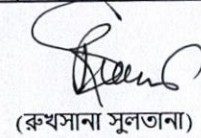 (রুখসানা সুলতানা)